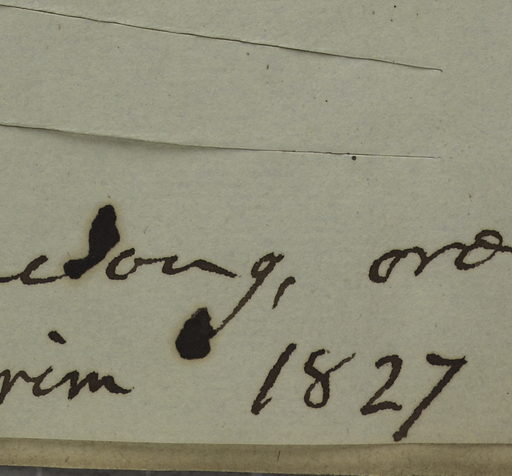 edong, ord
rim 1827